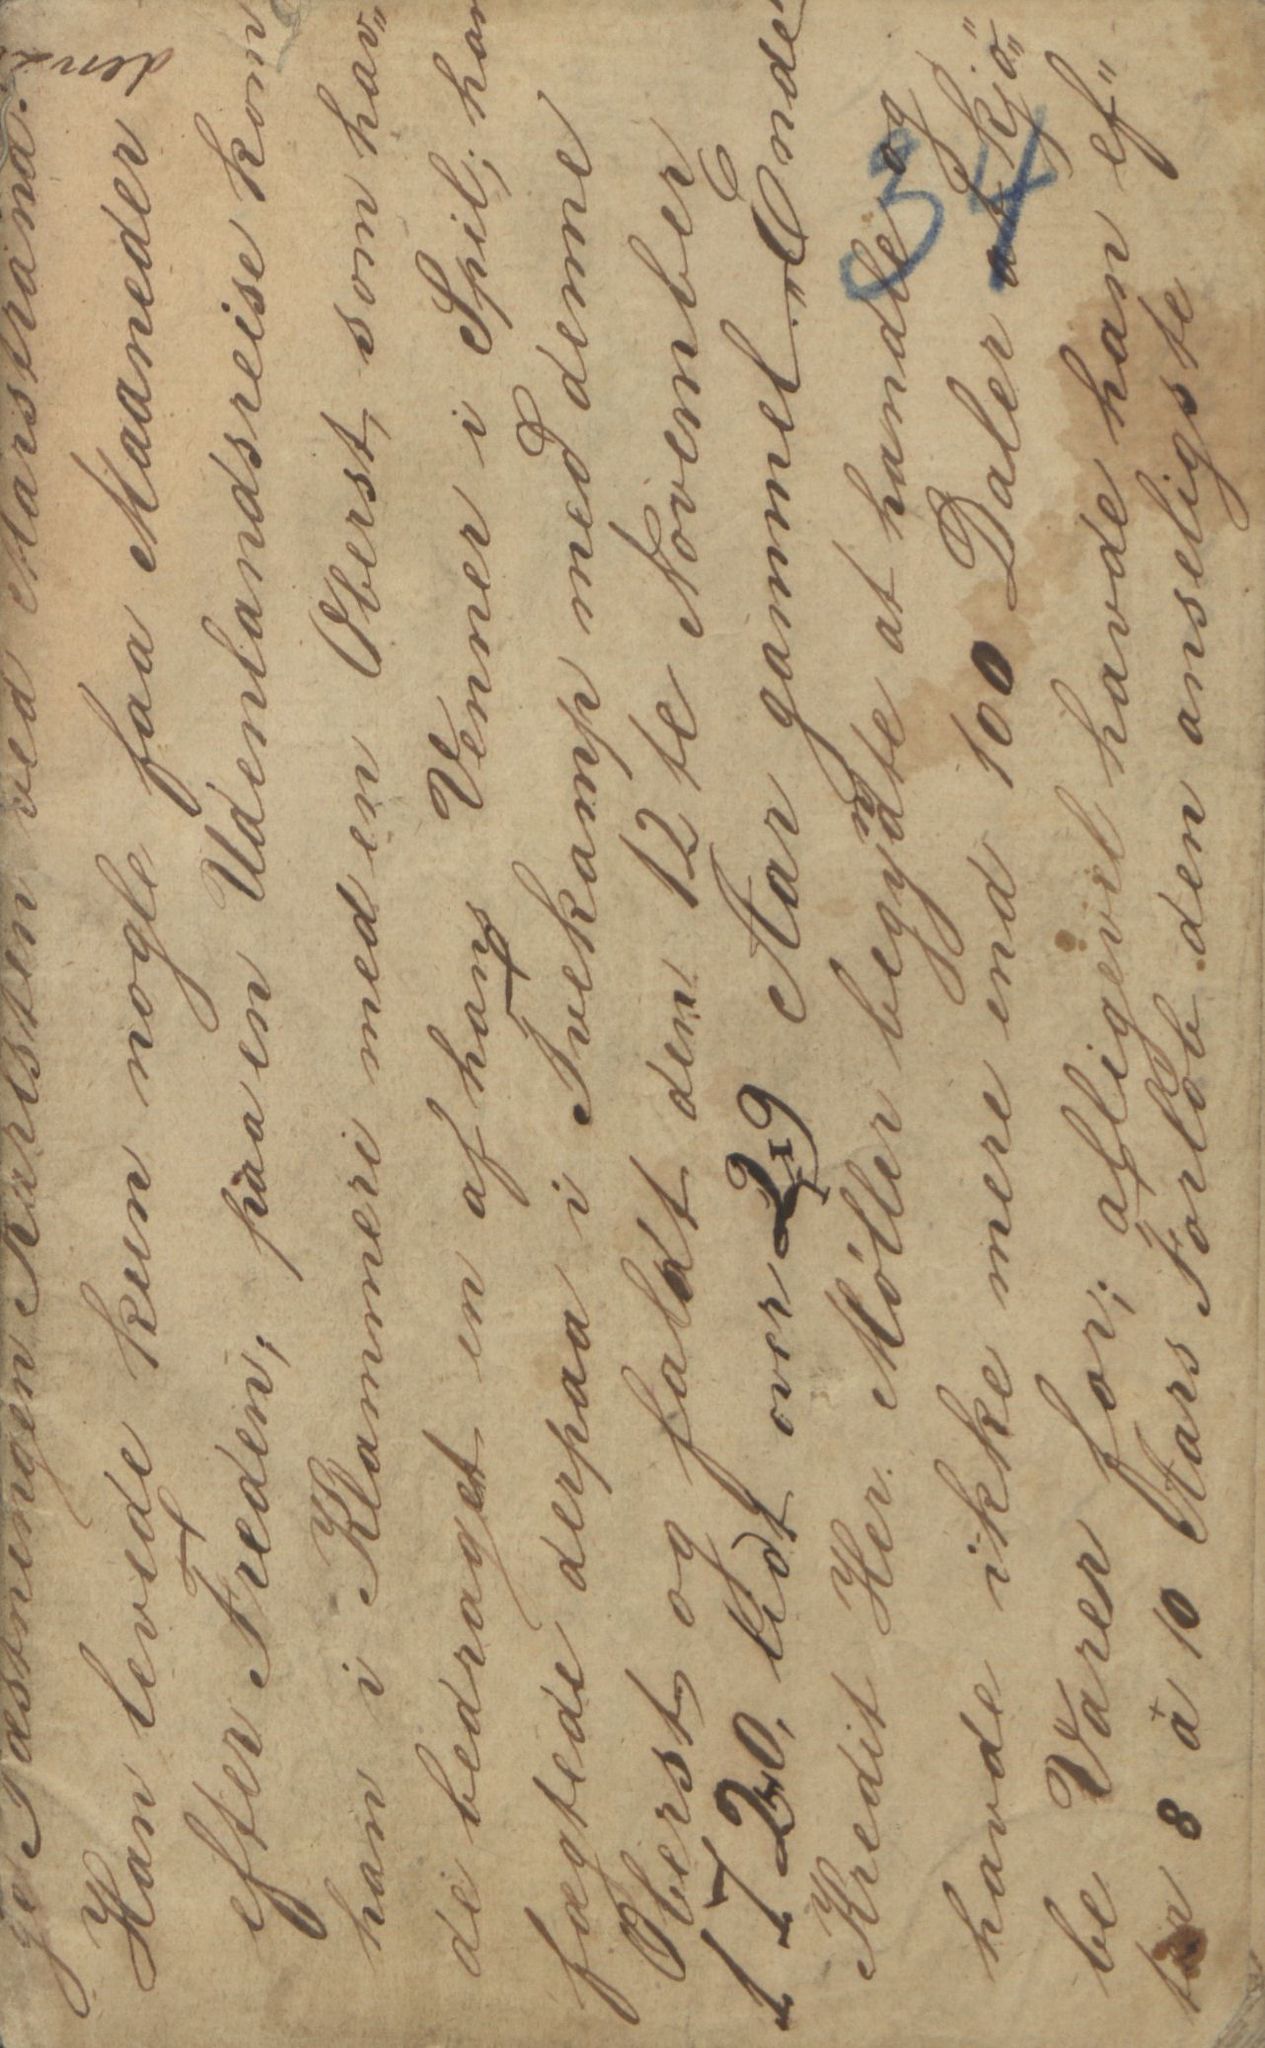 ge Fæstningen Karlsten ved Marstrand.
Han levede kun nogle faa Maaneder
efter Freden; paa en Udenlandsreise kom
han i Klammeri med en Oberst, som hav"
de bedraget en af hans Venner i Spil; han
fægtede derpaa i Tvekamp med denne
Oberst og faldt den 12te November
1720, lidt over 29 Aar gammel. "Onde
Kredit Her Möller begyndte at handle og
havde ikke mere end 100 Daler at kjö"
be Varer for; alligevel havde han ef"
ter 8 à 10 Aars Forløb den anseligste
34